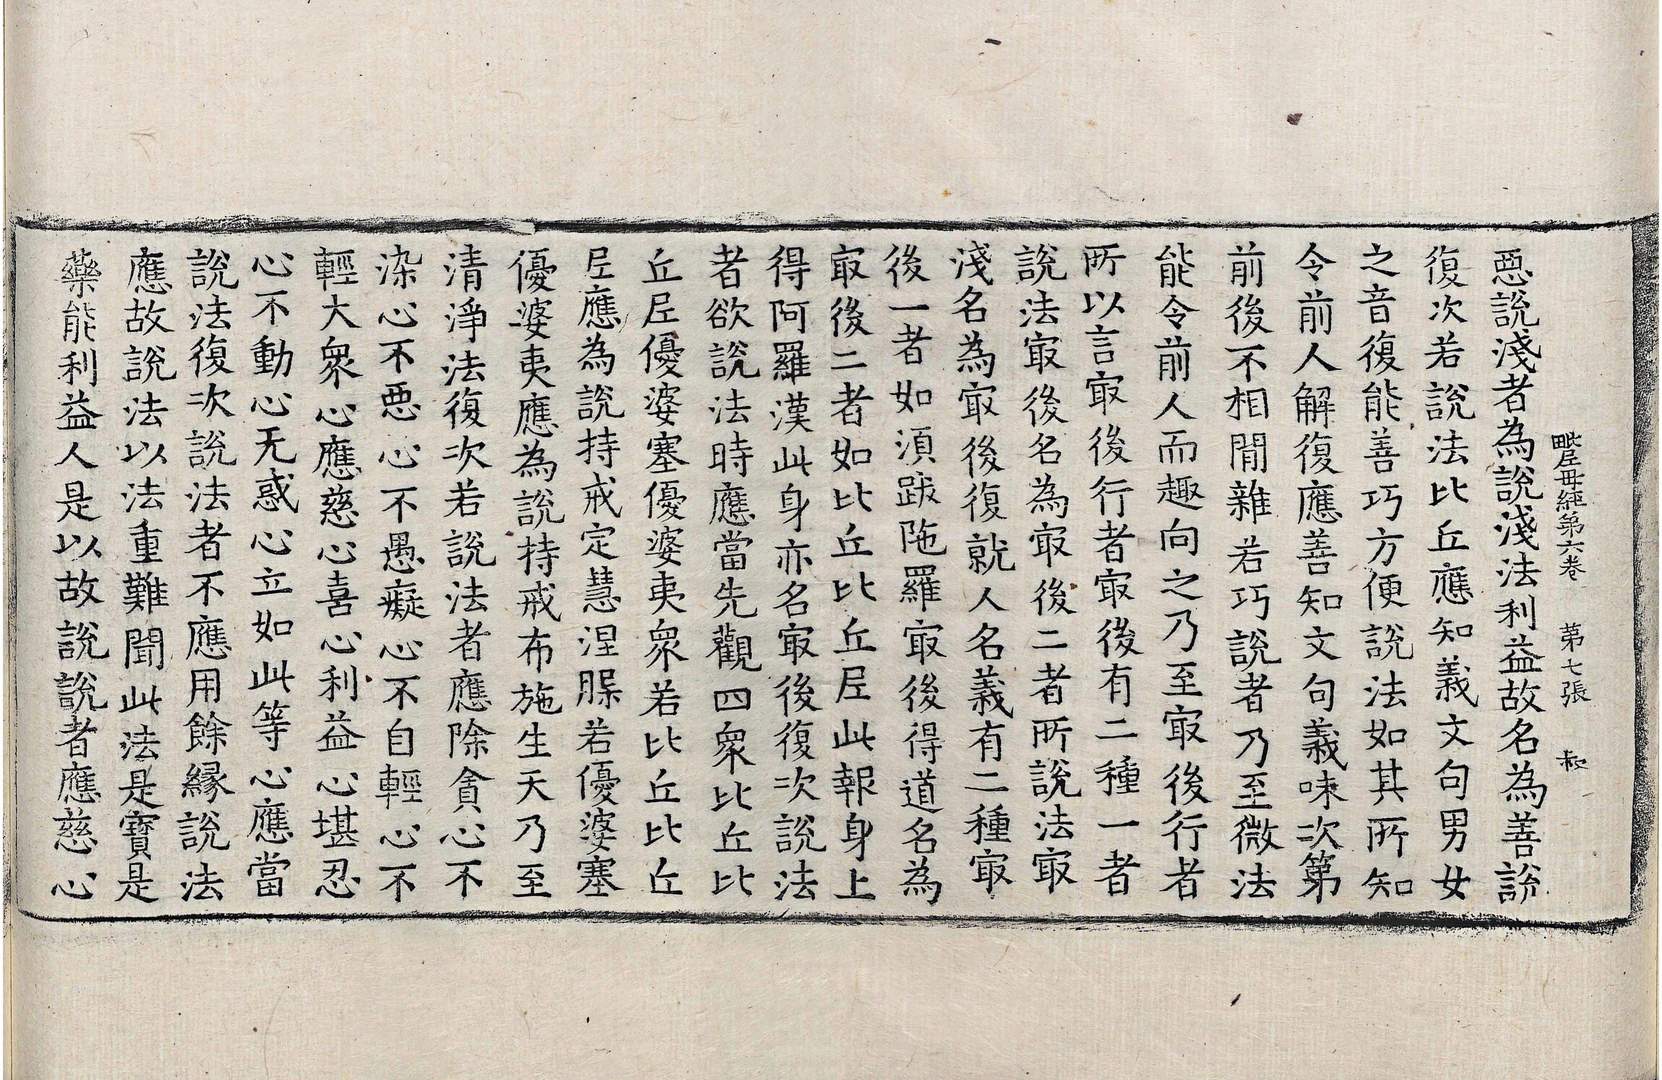 毗尼母經第六卷　第七張　叔
惡說淺者為說淺法利益故名為善說
復次若說法比丘應知義文句男女
之音復能善巧方便說法如其所知
令前人解復應善知文句義味次第
前後不相閒雜若巧說者乃至微法
能令前人而趣向之乃至㝡後行者
所以言㝡後行者㝡後有二種一者
說法㝡後名為㝡後二者所說法㝡
淺名為㝡後復就人名義有二種㝡
後一者如須跋陁羅㝡後得道名為
㝡後二者如比丘比丘尼此報身上
得阿羅漢此身亦名㝡後復次說法
者欲說法時應當先觀四眾比丘比
丘尼優婆塞優婆夷眾若比丘比丘
尼應為說持戒定慧涅槃若優婆塞
優婆夷應為說持戒布施生天乃至
清淨法復次若說法者應除貪心不
染心不惡心不愚癡心不自輕心不
輕大眾心應慈心喜心利益心堪忍
心不動心无惑心立如此等心應當
說法復次說法者不應用餘緣說法
應故說法以法重難聞此法是寶是
藥能利益人是以故說說者應慈心